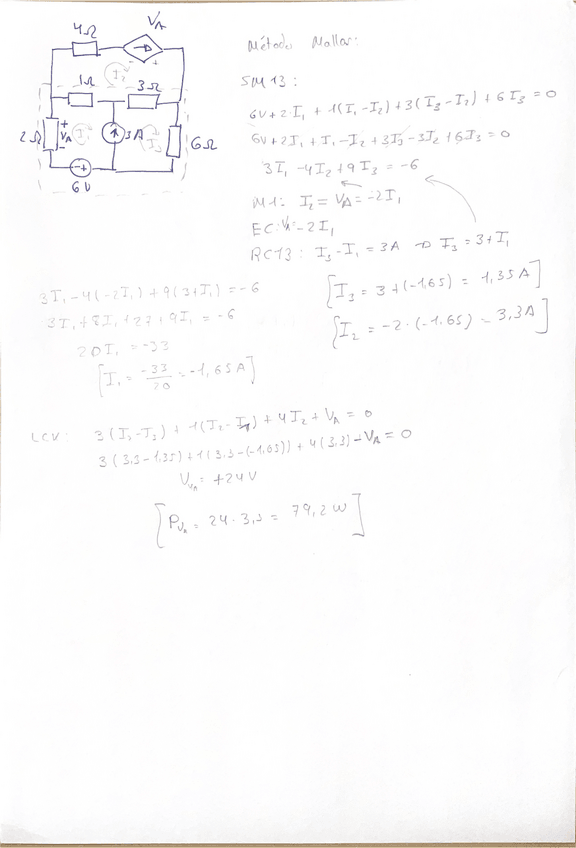 4Ω
V_A
- +
I₂
1Ω 3Ω
2Ω
+ V_A -
I₁
3A
I₃
6Ω
- +
6V
Método Mallas:
SM13:
6V + 2·I₁ + 1(I₁-I₂) + 3(I₃-I₂) + 6I₃ = 0
6V + 2I₁ + I₁ - I₂ + 3I₃ - 3I₂ + 6I₃ = 0
3I₁ - 4I₂ + 9I₃ = -6
M1: I₂ = V_A = -2I₁
EC: V_A = -2I₁
RC13: I₃ - I₁ = 3A → I₃ = 3 + I₁
3I₁ - 4(-2I₁) + 9(3+I₁) = -6
3I₁ + 8I₁ + 27 + 9I₁ = -6
20I₁ = -33
[I₁ = -33/20 = -1,65A]
[I₃ = 3 + (-1,65) = 1,35A]
[I₂ = -2·(-1.65) = 3,3A]
LCV: 3(I₂-I₃) + 1(I₂-I₁) + 4I₂ + V_A = 0
3(3,3-1,35) + 1(3,3-(-1,65)) + 4(3,3) - V_A = 0
V_{V_A} = +24V
[P_{V_A} = 24·3,3 = 79,2W]